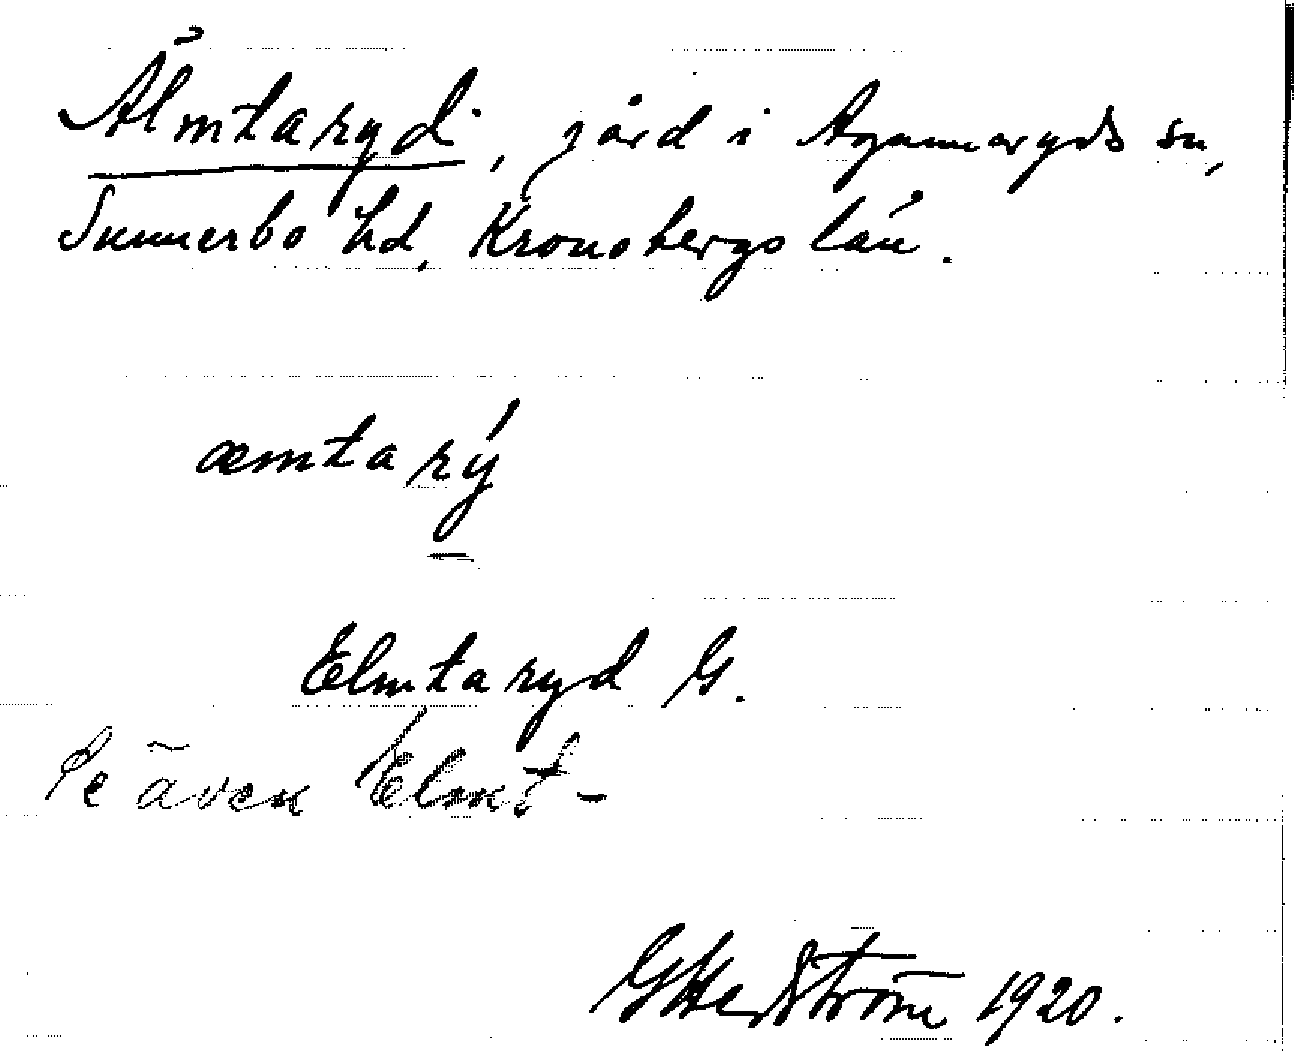 Älmtaryd, gård i Agunnaryds sn,
Sunnerbo hd, Kronobergs län.
æmtarý
Elmtaryd G.
Se även Elmt-
G Hedström 1920.